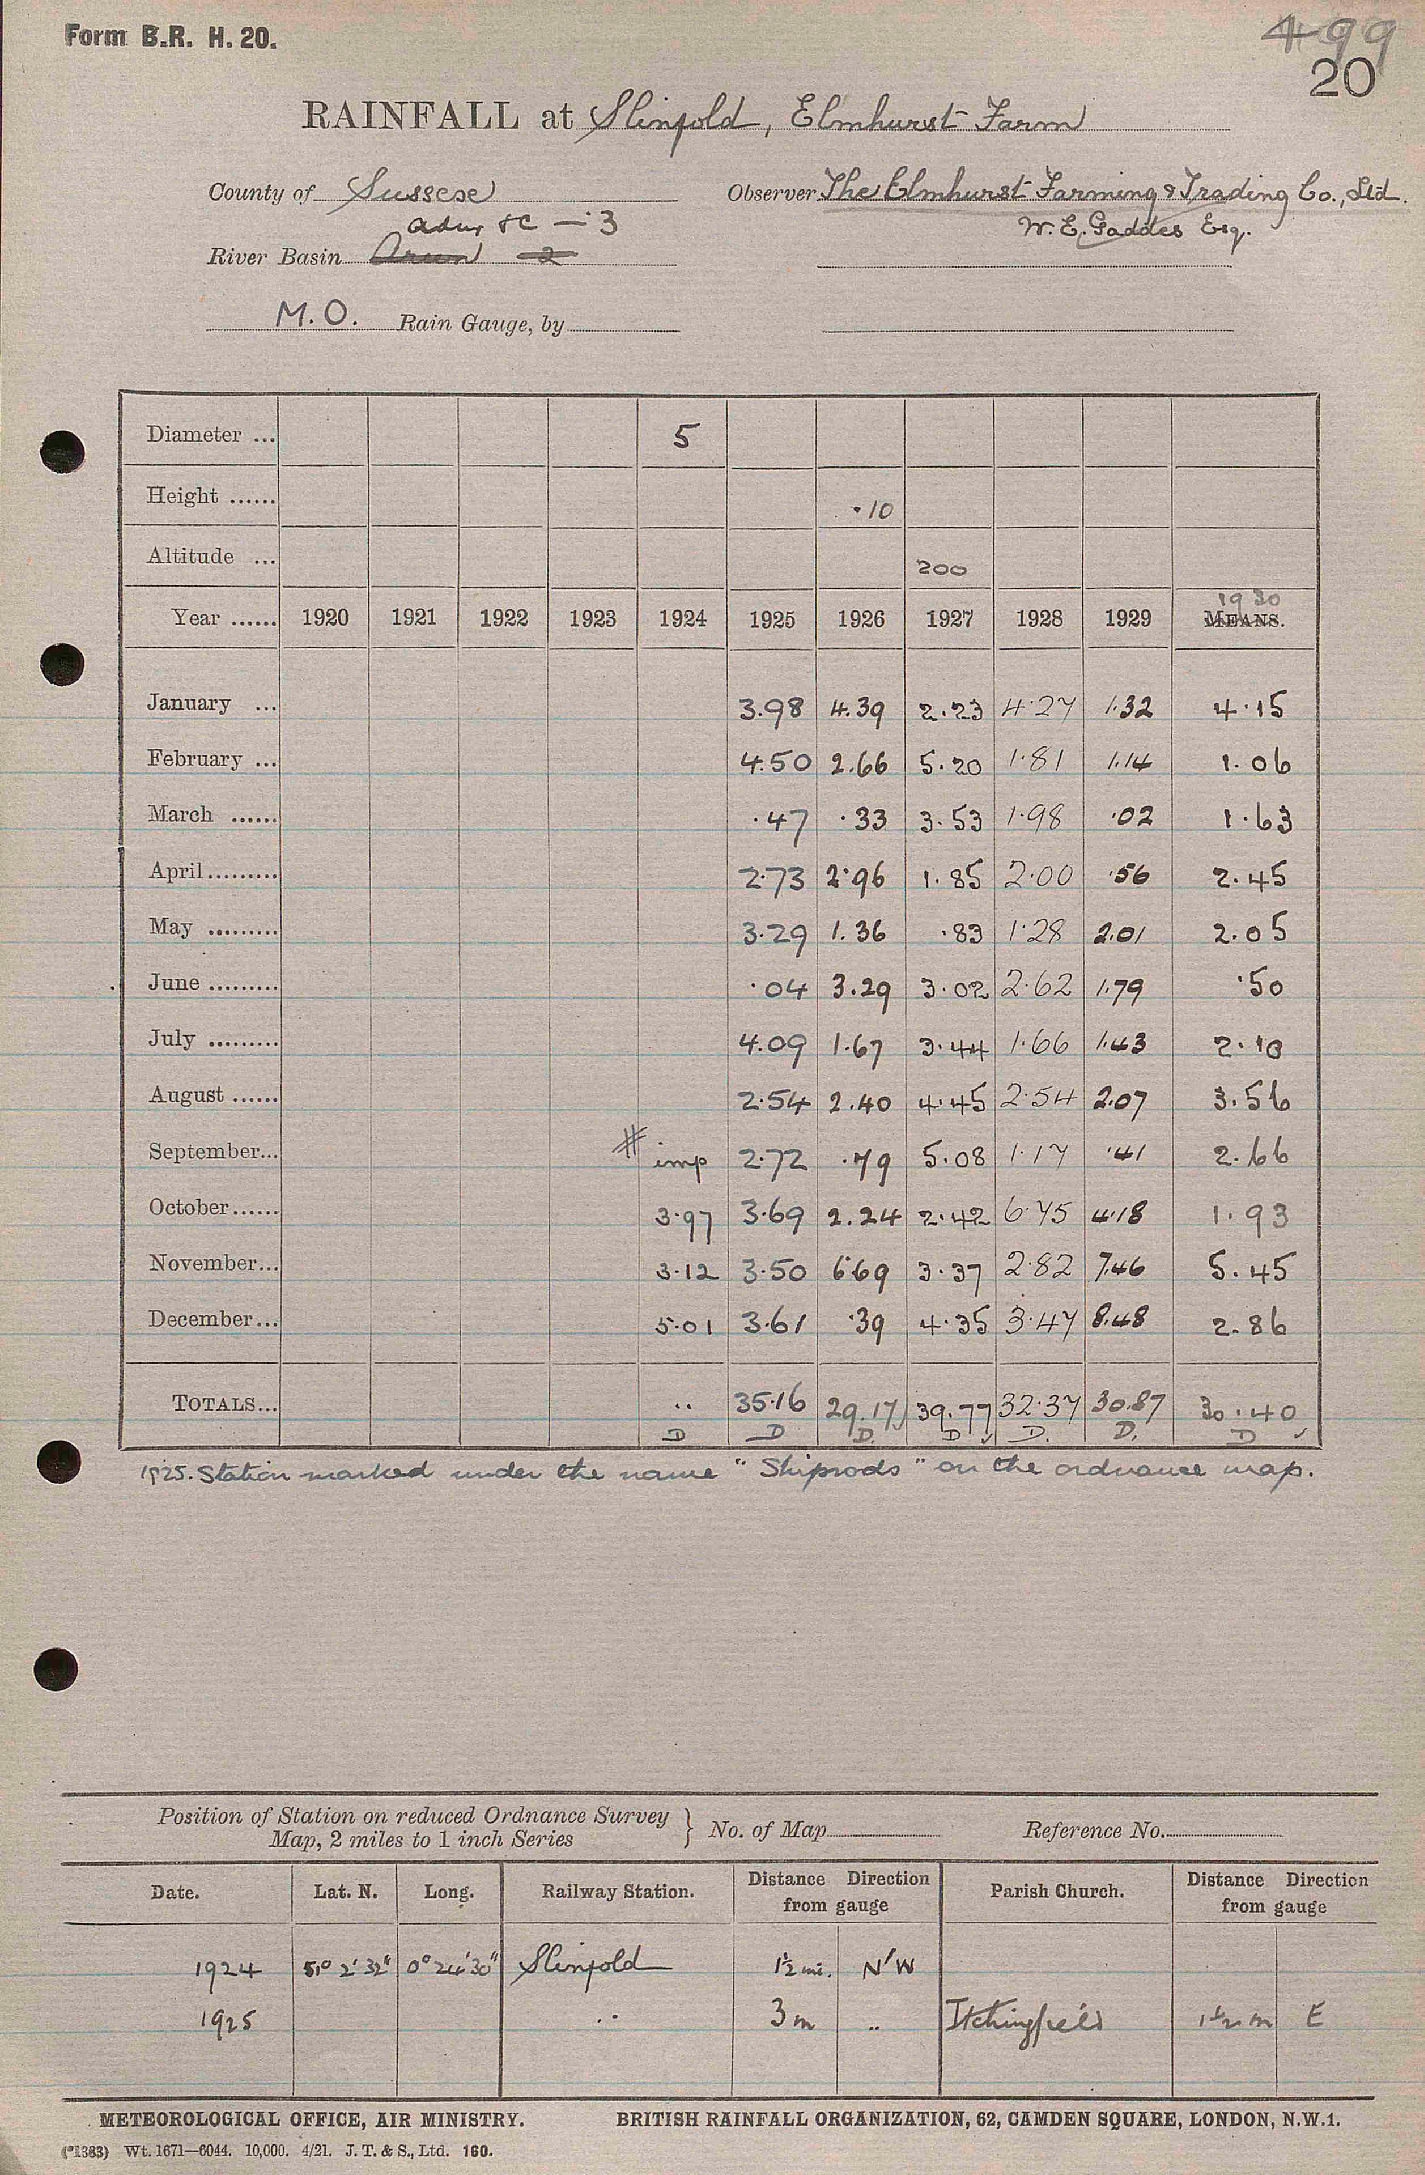 Form B.R. H. 20.
499
20
RAINFALL at Slinfold, Elmhurst Farm
County of Sussex Observer The Elmhurst Farming & Trading Co., Ltd.
Adur &c — 3 W. E. Gaddes Esq.
River Basin Arun 2
M.O. Rain Gauge, by
Diameter ... 5
Height ...... ·10
Altitude ... 200
1930
Year ...... 1920 1921 1922 1923 1924 1925 1926 1927 1928 1929 MEANS.
January ... 3.98 4.39 2.23 4.27 1.32 4.15
February ... 4.50 2.66 5.20 1.81 1.14 1.06
March ...... .47 .33 3.53 1.98 .02 1.63
April......... 2.73 2.96 1.85 2.00 .56 2.45
May ......... 3.29 1.36 .83 1.28 2.01 2.05
June ......... .04 3.29 3.02 2.62 1.79 .50
July ......... 4.09 1.67 3.44 1.66 1.43 2.10
August ...... 2.54 2.40 4.45 2.54 2.07 3.56
September... # imp 2.72 .79 5.08 1.17 .41 2.66
October...... 3.97 3.69 2.24 2.42 6.75 4.18 1.93
November... 3.12 3.50 6.69 3.37 2.82 7.46 5.45
December... 5.01 3.61 .39 4.35 3.47 8.48 2.86
TOTALS... .. 35.16 29.17 39.77 32.37 30.87 30.40
D D D. D D. D. D
1925. Station marked under the name "Shiprods" on the ordnance map.
Position of Station on reduced Ordnance Survey
Map, 2 miles to 1 inch Series } No. of Map Reference No.
Date. Lat. N. Long. Railway Station. Distance Direction from gauge Parish Church. Distance Direction from gauge
1924 51° 2' 32" 0° 24' 30" Slinfold 1½ mi. N'W
1925 .. 3 m .. Itchingfield 1½ m E
METEOROLOGICAL OFFICE, AIR MINISTRY. BRITISH RAINFALL ORGANIZATION, 62, CAMDEN SQUARE, LONDON, N.W.1.
(*1383) Wt. 1671—6044. 10,000. 4/21. J. T. & S., Ltd. 160.